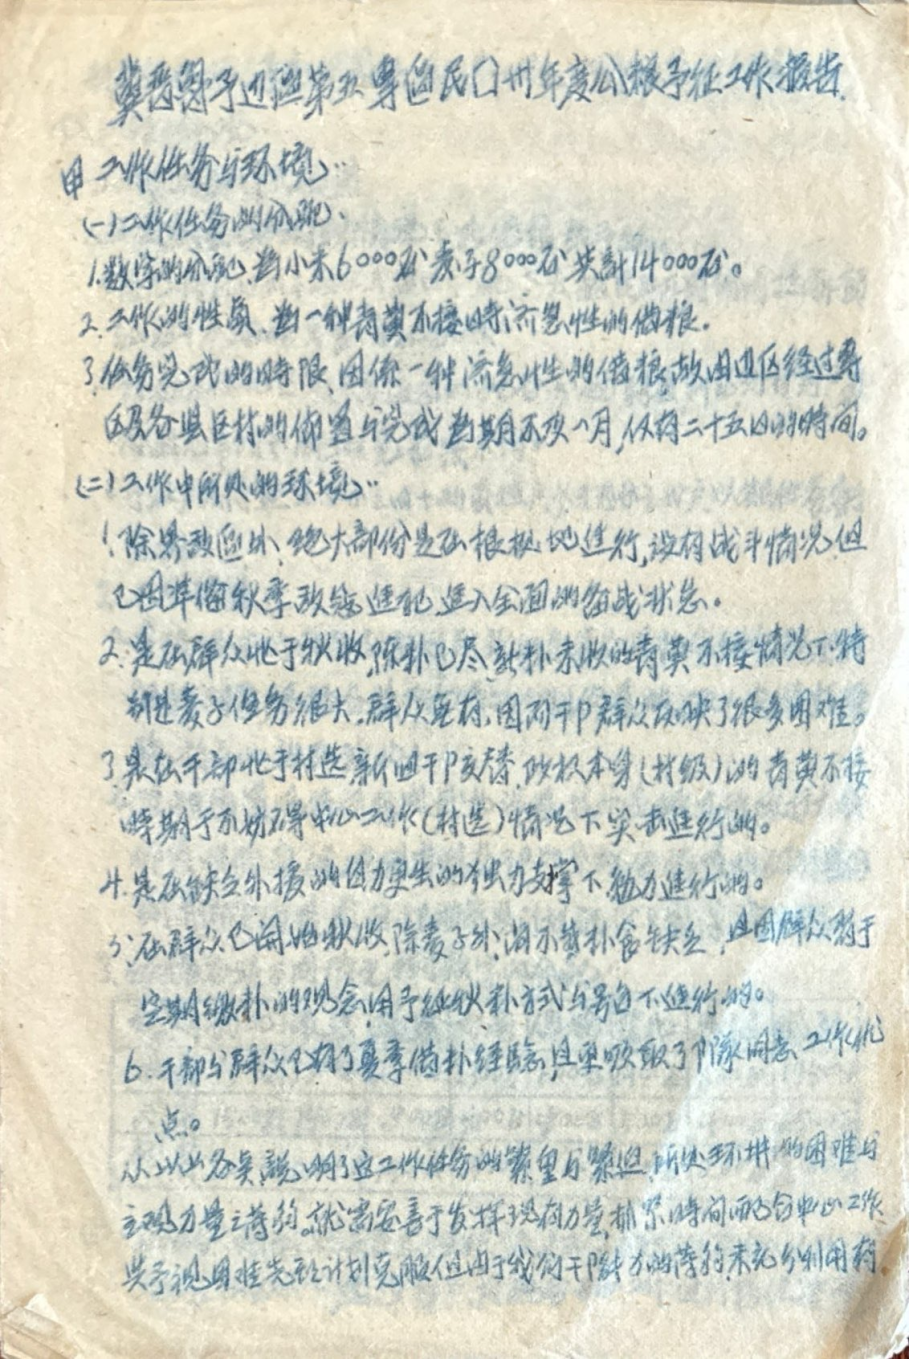 冀晋鲁予边区第五专区民囗卅年度公粮予征工作报告.
甲 工作任务与环境..
(一)工作任务的分配.
1.数字的分配,为小米6000石麦子8000石共計14000石。
2.工作的性质,为一种青黄不接時济急性的借粮.
3.任务完成的时限,因係一种济急性的借粮,故由边区经过专
区及各县区村的佈置与完成为期不及一月,仅有二十五日的時间。
(二)工作中所处的环境..
1.除界敌區外、绝大部份是在根据地進行,没有战斗情况,但
已因準俻秋季政、進入全面的备战状态.
2.是在群众忙于秋收,陈朴已尽新朴未收的青黄不接情况下.特
别是麦子任务很大.群众无存,因而干P群众反映了很多困难。
3.是在干部忙于村选,新旧干P交替.政权本身(村级)的青黄不接
時期于不妨碍中心工作(村选)情况下突击進行的。
4.是在缺乏外援的自力更生的独力支撑下努力進行的。
5.在群众已開始秋收,除麦子外,尚不甚朴食缺乏,且因群众對于
定期缴朴的观念,用予征秋朴方式与号召下進行的。
6.干部与群众已有了夏季借朴经验,且吸取了P队同志工作优
点。
从以上各点說明了這工作任务的繁重与緊迫,所处环境的困难与
主观力量之薄弱.就需要善于发挥现有力量,抓紧時间配合中心工作
共予視困难先予計划克服,但由于我们干P能力的薄弱,未充分利用有